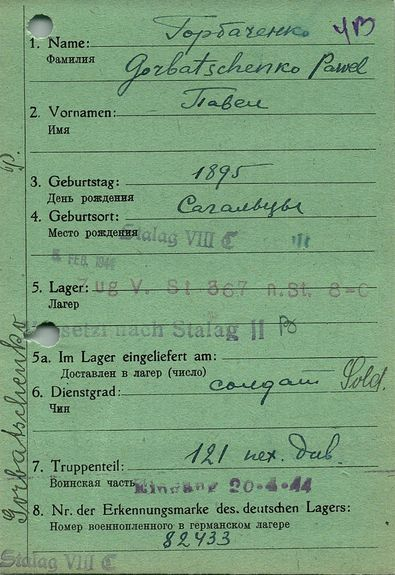 Горбаченко УВ
1. Name:
Фамилия
Gorbatschenko Pawel
2. Vornamen: Павел
Имя
3. Geburtstag: 1895
День рождения
4. Geburtsort: Сагальвцы
Место рождения
Stalag VIII C
FEB. 1944
5. Lager: ug V. St 367 n. St. 8-C
Лагер
setzt nach Stalag II B
5a. Im Lager eingeliefert am:
Доставлен в лагер (число)
6. Dienstgrad: солдат Sold.
Чин
7. Truppenteil: 121 пех. див.
Воинская часть
Eingang 20-4-44
8. Nr. der Erkennungsmarke des deutschen Lagers:
Номер военнопленного в германском лагере
82433
Stalag VIII C
Gorbatschenko